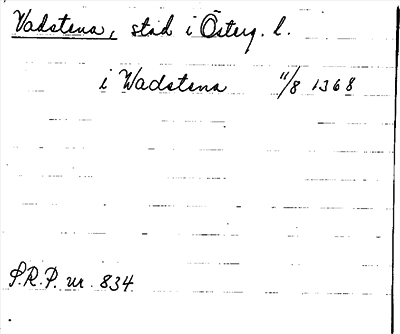 Vadstena, stad i Österg. l.
i Wadstena 11/8 1368
S.R.P. nr 834